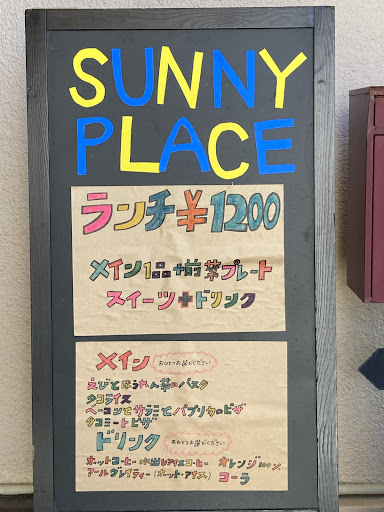 SUNNY
PLACE
ランチ¥1200
メイン1品+前菜プレート
スイーツ+ドリンク
メイン おひとつお選びください
えびとほうれん草のパスタ
タコライス
ベーコンとサラミとパプリカのピザ
タコミートピザ
ドリンク おひとつお選びください
ホットコーヒー 水出しアイスコーヒー オレンジ100%
アールグレイティー(ホット・アイス) コーラ